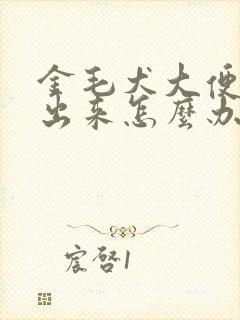 金毛犬大便
出来怎麼办
宸啓1